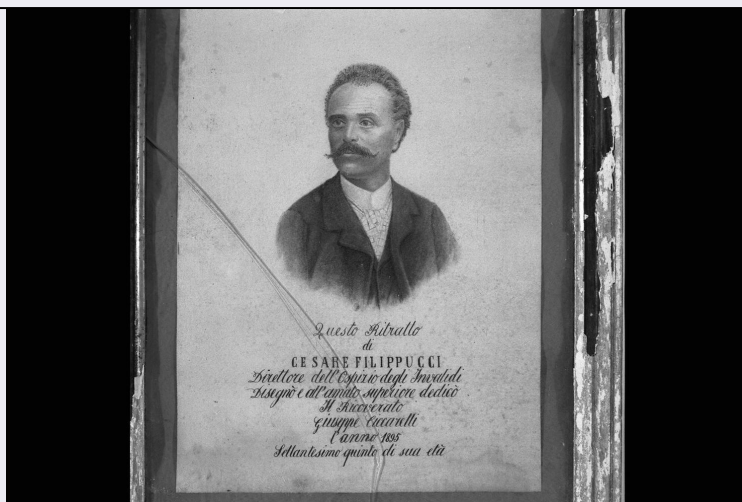 Questo Ritratto
di
CESARE FILIPPUCCI
Direttore dell'Ospizio degli Invalidi
Disegnò e all'amato superiore dedicò
Il Ricoverato
Giuseppe Ciccarelli
l'anno 1895
Settantesimo quinto di sua età